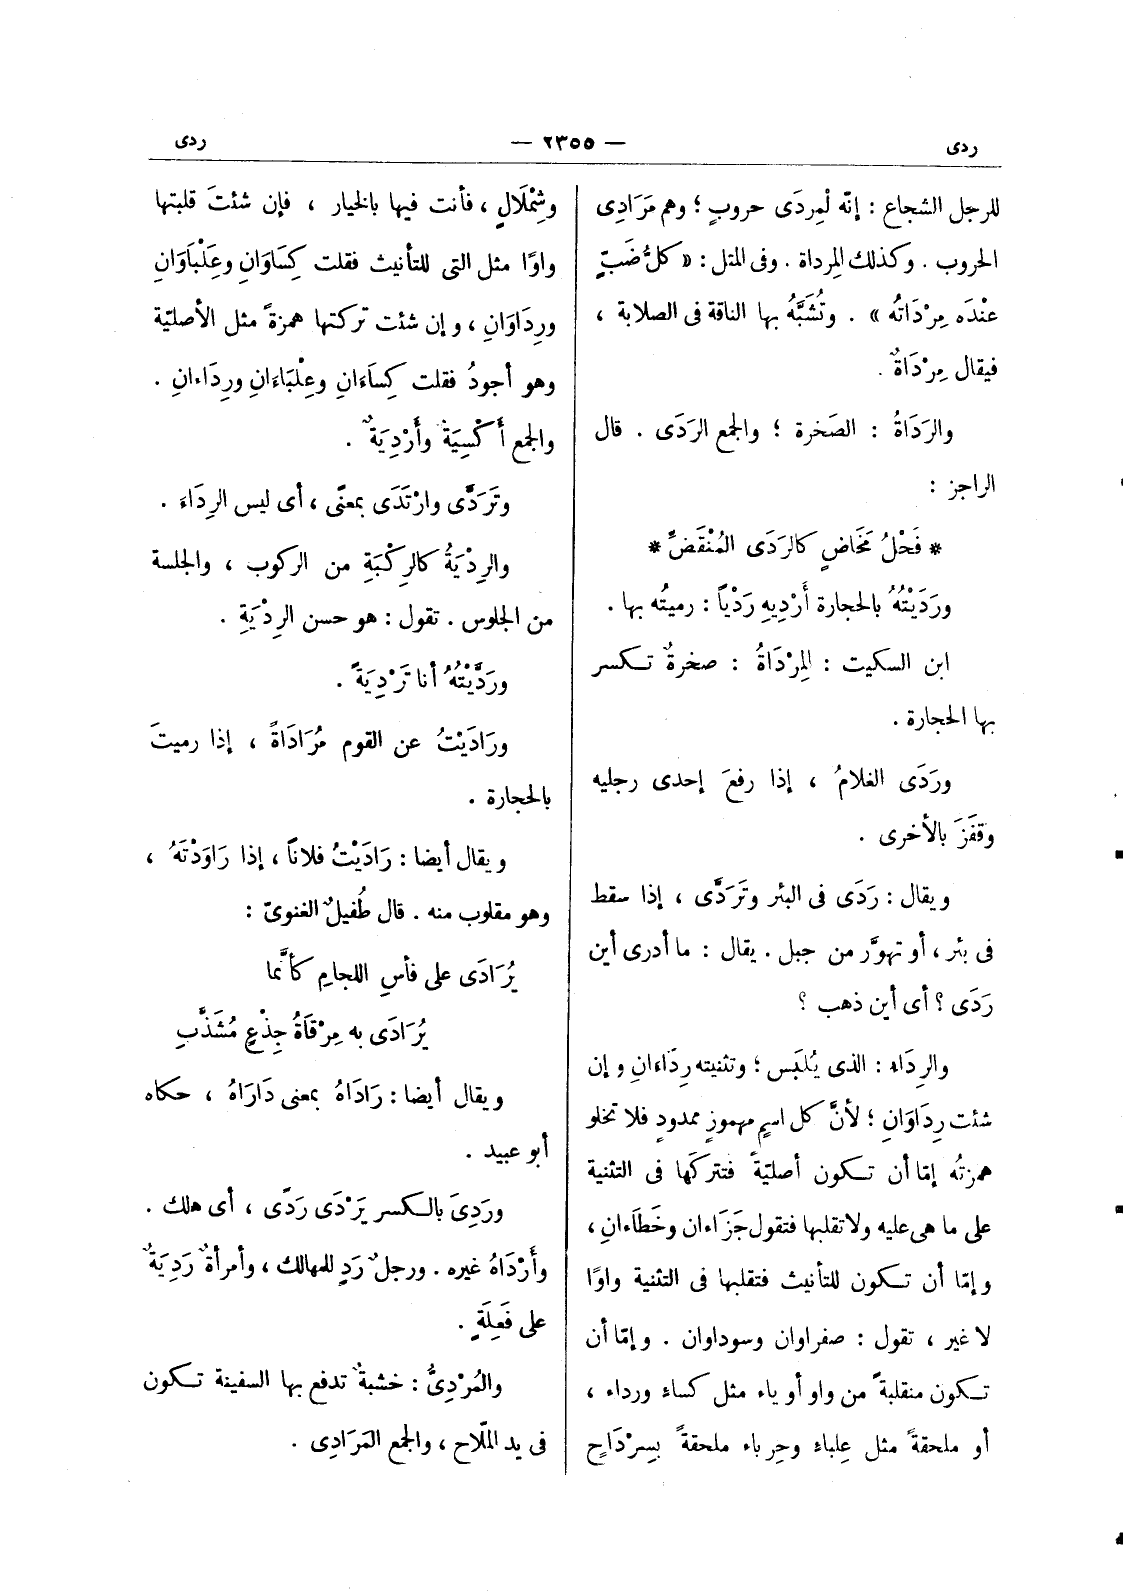 ردى
— ٢٣٥٥ —
ردى
للرجل الشجاع : إنّه لْمِردَى حروبٍ ؛ وهم مَرَادِى
الحروب . وكذلك المِرداة . وفى المثل : « كلُّ ضَبٍّ
عنْدَه مِرْدَاتُه » . وتُشَبَّهُ بها الناقة فى الصلابة ،
فيقال مِرْدَاةٌ .
والرَدَاةُ : الصَخرة ؛ والجمع الرَدَى . قال
الراجز :
* فَحْلُ مَخَاضٍ كالرَدَى المُنْقَضِّ *
ورَدَيْتُهُ بالحجارة أَرْدِيهِ رَدْياً : رميتُه بها .
ابن السكيت : المِرْدَاةُ : صخرةٌ تكسر
بها الحجارة .
ورَدَى الغلامُ ، إذا رفعَ إحدى رجليه
وقفَزَ بالأخرى .
ويقال : رَدَى فى البئر وتَرَدَّى ، إذا سقط
فى بئر ، أو تهوَّر من جبل . يقال : ما أدرى أين
رَدَى ؟ أى أين ذهب ؟
والرِدَاء : الذى يُلبَس ؛ وتثنيته رِدَاءَانِ وإن
شئت رِدَاوَانِ ؛ لأنَّ كل اسمٍ مهموزٍ ممدودٍ فلا تخلو
همزتُه إمّا أن تكون أصليّةً فتتركَها فى التثنية
على ما هى عليه ولا تقلبها فتقول جَزَاءان وخَطَاءانِ ،
وإمّا أن تكون للتأنيث فتقلبها فى التثنية واوًا
لا غير ، تقول : صفراوان وسوداوان . وإمّا أن
تكون منقلبةً من واو أو ياء مثل كساء ورداء ،
أو ملحقةً مثل عِلباءٍ وحِرباء ملحقةً بسِرْدَاحٍ
وشِمْلَالٍ ، فأنت فيها بالخيار ، فإن شئتَ قلبتها
واوًا مثل التى للتأنيث فقلت كِسَاوَانِ وعِلْبَاوَانِ
ورِدَاوَانِ ، وإن شئت تركتها همزةً مثل الأصليّة
وهو أجودُ فقلت كِسَاءَانِ وعِلْبَاءَانِ ورِدَاءانِ .
والجمع أَكْسِيَةٌ وأَرْدِيَةٌ .
وتَرَدَّى وارْتَدَى بمعنًى ، أى لبس الرِدَاءَ .
والرِدْيَةُ كالرِكْبَةِ من الركوب ، والجلسة
من الجلوس . تقول : هو حسن الرِدْيَةِ .
ورَدَّيْتُهُ أنا تَرْدِيَةً .
ورَادَيْتُ عن القوم مُرَادَاةً ، إذا رميتَ
بالحجارة .
ويقال أيضا : رَادَيْتُ فلاناً ، إذا رَاوَدْتَهُ ،
وهو مقلوب منه . قال طُفيلٌ الغنوىّ :
يُرَادَى على فأسِ اللجامِ كأنَّما
يُرَادَى به مِرْقَاةُ جِذْعٍ مُشَذَّبِ
ويقال أيضا : رَادَاهُ بمعنى دَارَاهُ ، حكاه
أبو عبيد .
ورَدِىَ بالكسر يَرْدَى رَدًى ، أى هلك .
وأَرْدَاهُ غيره . ورجلٌ رَدٍ للهالك ، وأمرأةٌ رَدِيَةٌ
على فَعِلَةٍ .
والمُرْدِىُّ : خشبةٌ تدفع بها السفينة تكون
فى يد الملّاح ، والجمع المَرَادِى .